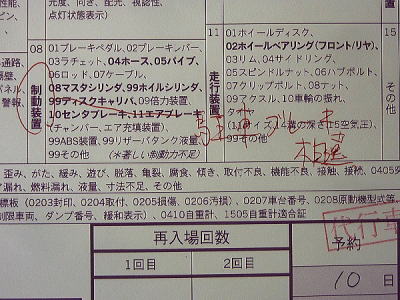 光度、向き、配光、視認性、
点灯状態表示)
15
08
制動装置
01ブレーキペダル、02ブレーキレバー、
03ラチェット、04ホース、05パイプ、
06ロッド、07ケーブル、
08マスタシリンダ、99ホイルシリンダ、
99ディスクキャリパ、09倍力装置、
10センタブレーキ、11エアブレーキ
(チャンバー、エア充填装置)、
99ABS装置、99リザーバタンク液量、
99その他 (※著しい制動力不足)
11
走行装置
01ホイールディスク、
02ホイールベアリング(フロント/リヤ)、
03リム、04サイドリング、
05スピンドルナット、06ハブボルト、
07クリップボルト、08ナット、
09アクスル、10車輪の振れ、
タイヤ
99その他
その他
歪み、がた、緩み、遊び、脱落、亀裂、腐食、傾き、取付不良、機能不良、接触、接続、0405
ア漏れ、燃料漏れ、液量、寸法不足、その他
標板(0203封印、0204取付、0205損傷、0206汚損)、0207車台番号、0208原動機型式
制限車両、ダンプ番号、緩和表示)、0410自重計、1505自重計適合証
再入場回数
1回目
2回目
代行車
予約
10日